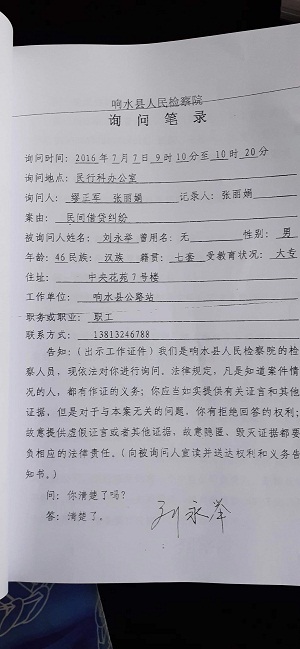 响水县人民检察院
询问笔录
询问时间：2016年7月7日9时10分至10时20分
询问地点：民行科办公室
询问人：缪正军 张丽娟 记录人：张丽娟
案由：民间借贷纠纷
被询问人姓名：刘永举 曾用名：无 性别：男
年龄：46 民族：汉族 籍贯：七套 受教育状况：大专
住址：中央花苑7号楼
工作单位：响水县公路站
职务或职业：职工
联系方式：13813246788
告知：（出示工作证件）我们是响水县人民检察院的检
察人员，现依法对你进行询问。法律规定，凡是知道案件情
况的人，都有作证的义务；你应当如实提供有关证言和其他
证据，但是对于与本案无关的问题，你有拒绝回答的权利；
故意提供虚假证言或者其他证据，故意隐匿、毁灭证据都要
负相应的法律责任。（向被询问人宣读并送达权利和义务告
知书。）
问：你清楚了吗？
答：清楚了。
刘永举